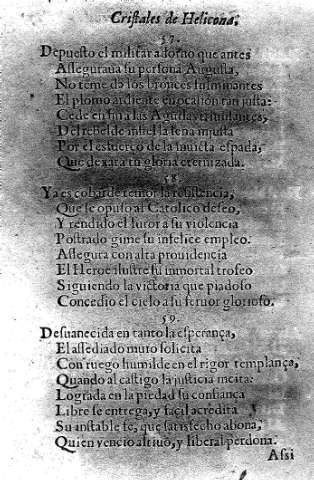 Cristales de Helicona.
57.
Depuesto el militar adorno que antes
Asseguraua su persona Augusta,
No teme de los bronces fulminantes
El plomo ardiente en ocasion tan justa:
Cede en fin a las Aguilas
Del rebelde infiel la seña injusta
Por el esfuerço de la inuicta espada,
Que dexarà tu gloria eternizada.
58.
Ya es cobarde temor la resistencia,
Que se opuso al Catolico deseo,
Y rendido el furor a su violencia
Postrado gime su infelice empleo.
Assegura con alta prouidencia
El Heroe ilustre su immortal trofeo
Siguiendo la victoria que piadoso
Concedio el cielo a su feruor glorioso.
59.
Desuanecida en tanto la esperança,
El assediado muro solicita
Con ruego humilde en el rigor templança,
Quando al castigo la justicia incita:
Lograda en la piedad su confiança
Libre se entrega, y facil acredita
Su instable fe, que satisfecho abona,
Quien vencio altiuo, y liberal perdona.
Assi